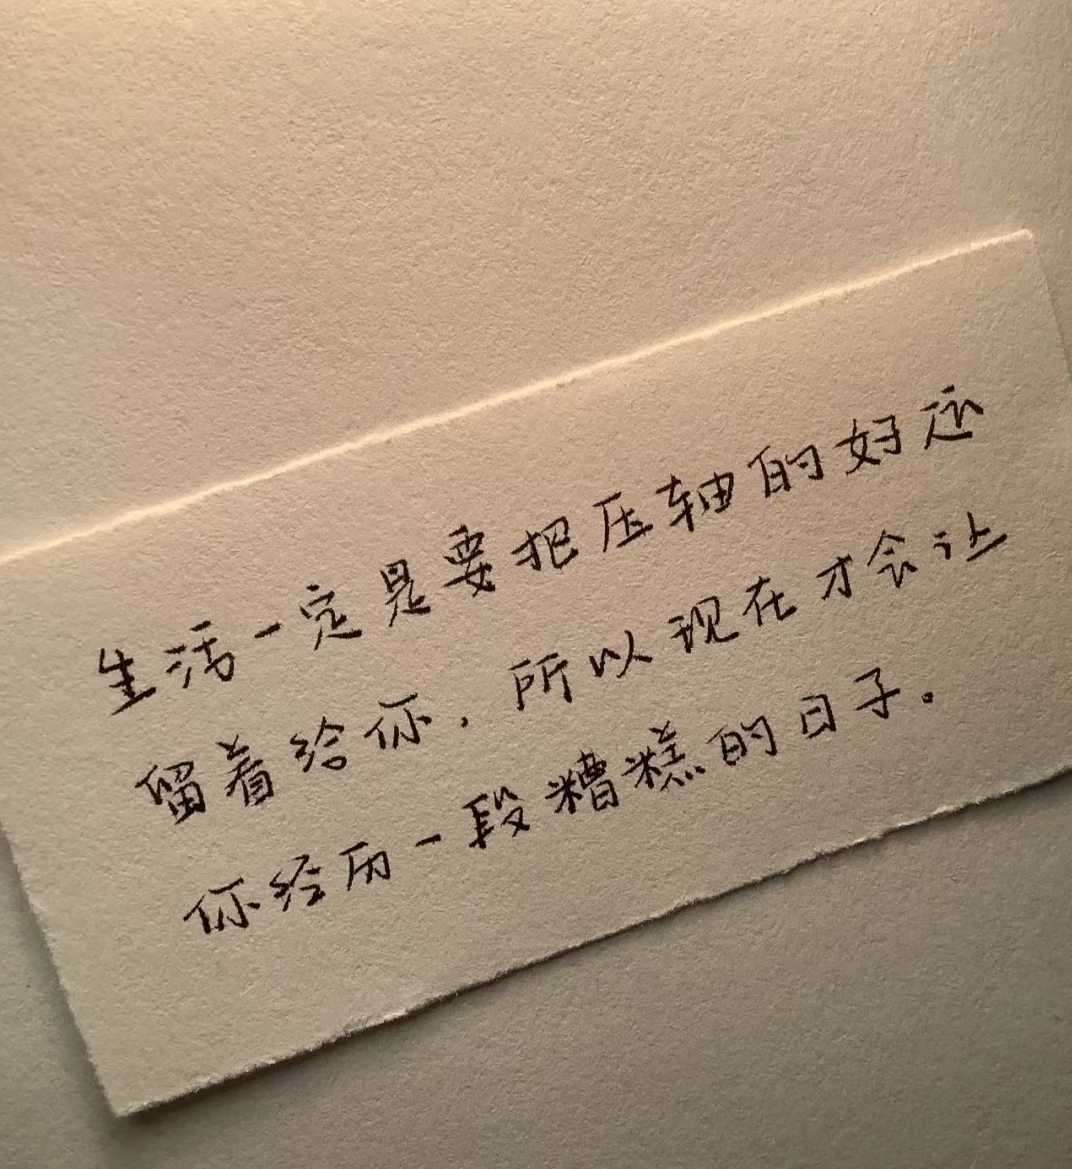 生活一定是要把压轴的好还
留着给你，所以现在才会让
你经历一段糟糕的日子。